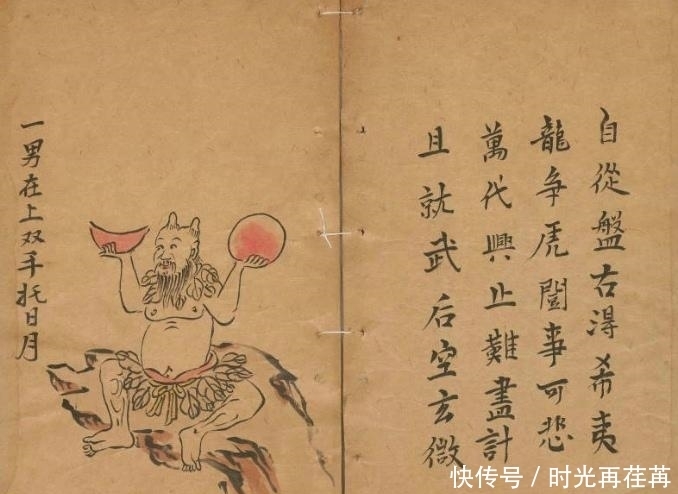 自從盤古淂希夷
龍争虎鬪事可悲
萬代興止難盡計
且就武后空玄微
一男在上双手托日月
快传号 / 时光再荏苒